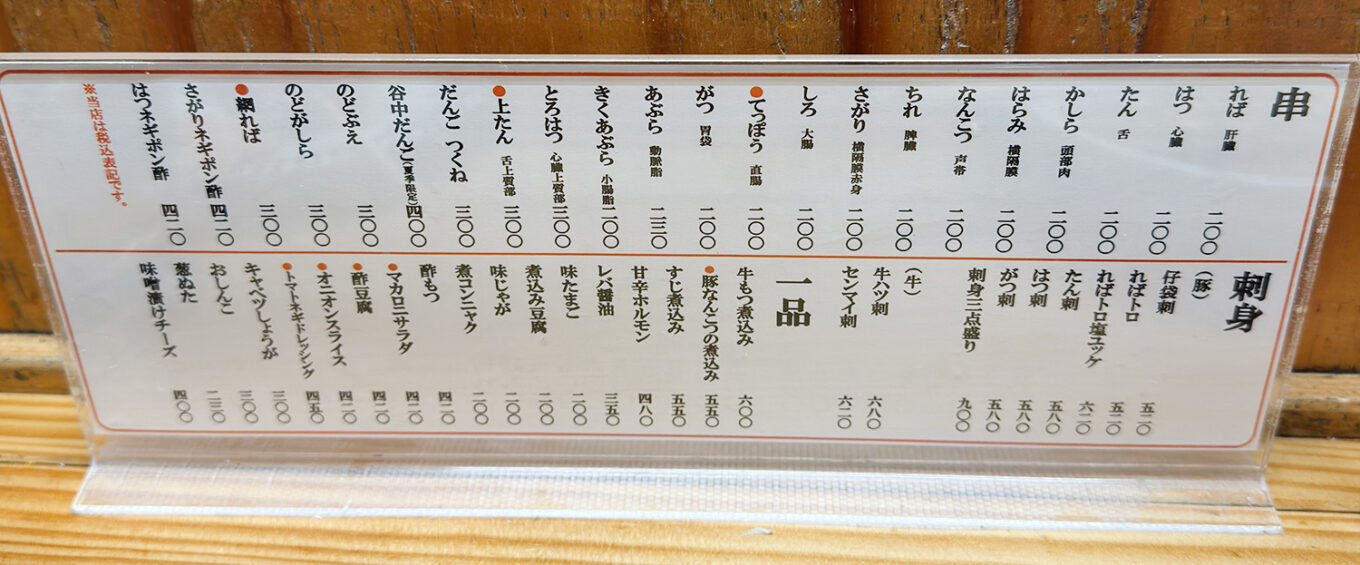 串
れば 肝臓 二〇〇
はつ 心臓 二〇〇
たん 舌 二〇〇
かしら 頭部肉 二〇〇
はらみ 横隔膜 二〇〇
なんこつ 声帯 二〇〇
ちれ 脾臓 二〇〇
さがり 横隔膜赤身 二〇〇
しろ 大腸 二〇〇
●てっぽう 直腸 二〇〇
がつ 胃袋 二〇〇
あぶら 動脈脂 二三〇
きくあぶら 小腸脂 二〇〇
とろはつ 心臓上質部 三〇〇
●上たん 舌上質部 三〇〇
だんご つくね 三〇〇
谷中だんご(夏季限定) 四〇〇
のどぶえ 三〇〇
のどがしら 三〇〇
●網れば 三〇〇
さがりネギポン酢 四二〇
はつネギポン酢 四二〇
※当店は税込表記です。
刺身
(豚)
仔袋刺 五二〇
ればトロ 五二〇
ればトロ塩ユッケ 六二〇
たん刺 五八〇
はつ刺 五八〇
がつ刺 五八〇
刺身三点盛り 九〇〇
(牛)
牛ハツ刺 六八〇
センマイ刺 六二〇
一品
牛もつ煮込み 六〇〇
●豚なんこつの煮込み 五五〇
すじ煮込み 五五〇
甘辛ホルモン 四八〇
レバ醤油 三五〇
味たまご 二〇〇
煮込み豆腐 二〇〇
味じゃが 二〇〇
煮コンニャク 二〇〇
酢もつ 四二〇
●マカロニサラダ 四二〇
●酢豆腐 四二〇
●オニオンスライス 四二〇
●トマトネギドレッシング 四五〇
キャベツしょうが 三〇〇
おしんこ 三〇〇
葱ぬた 二三〇
味噌漬けチーズ 四〇〇